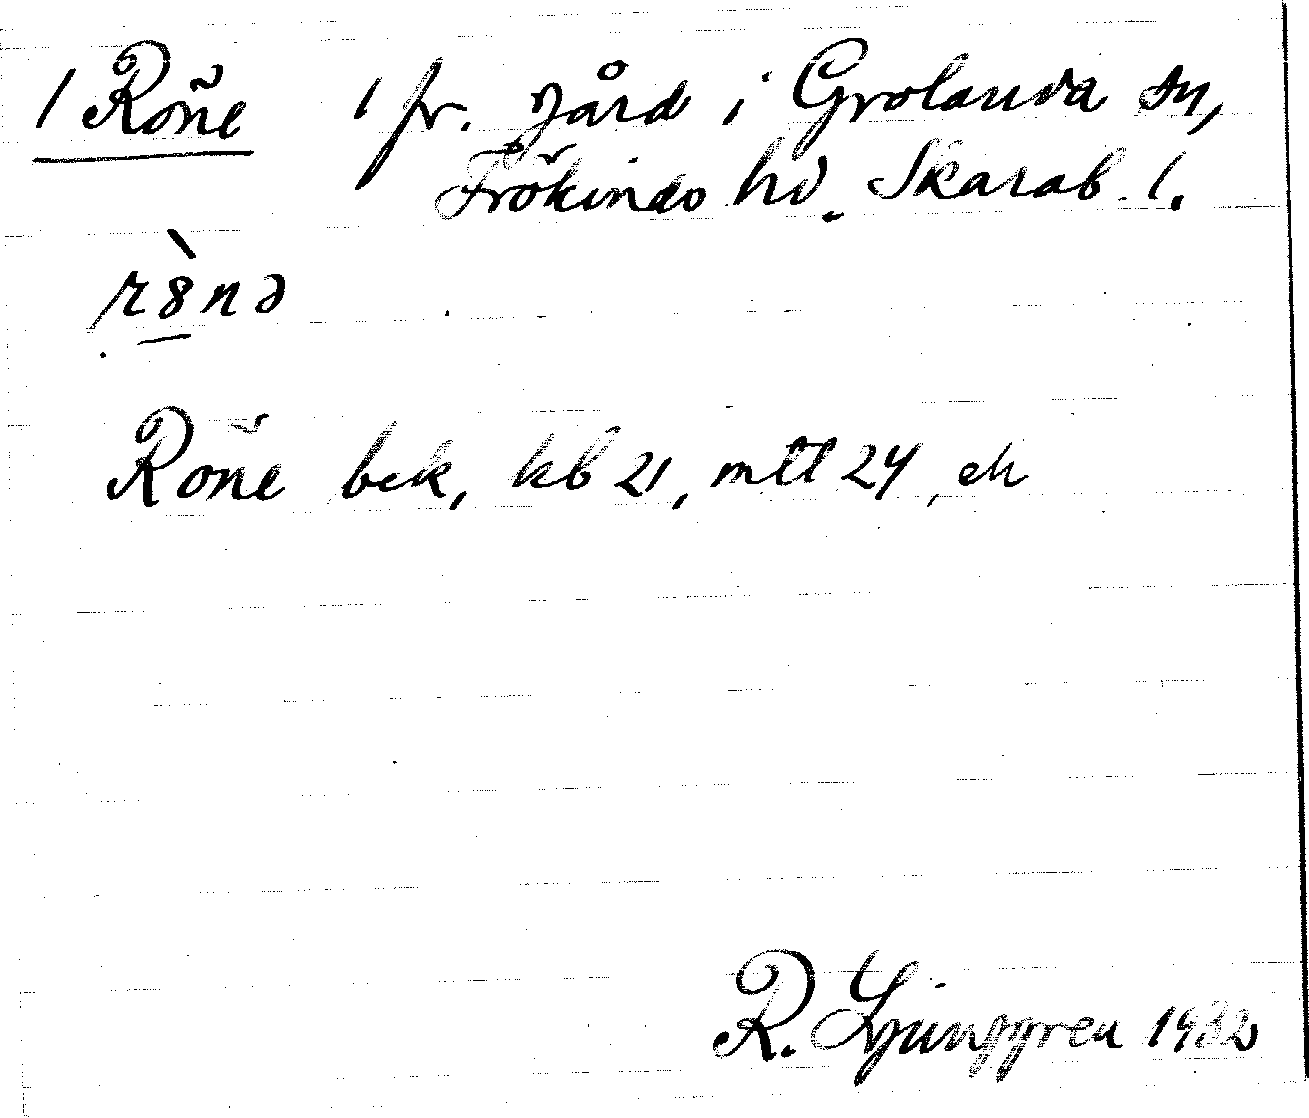 1 Röne 1 fr. gård i Grolanda sn,
Frökinds hd. Skarab. l.
rȣ̀nə
Röne bek, kb 21, mtl 24, ek
R. Ljunggren 1932